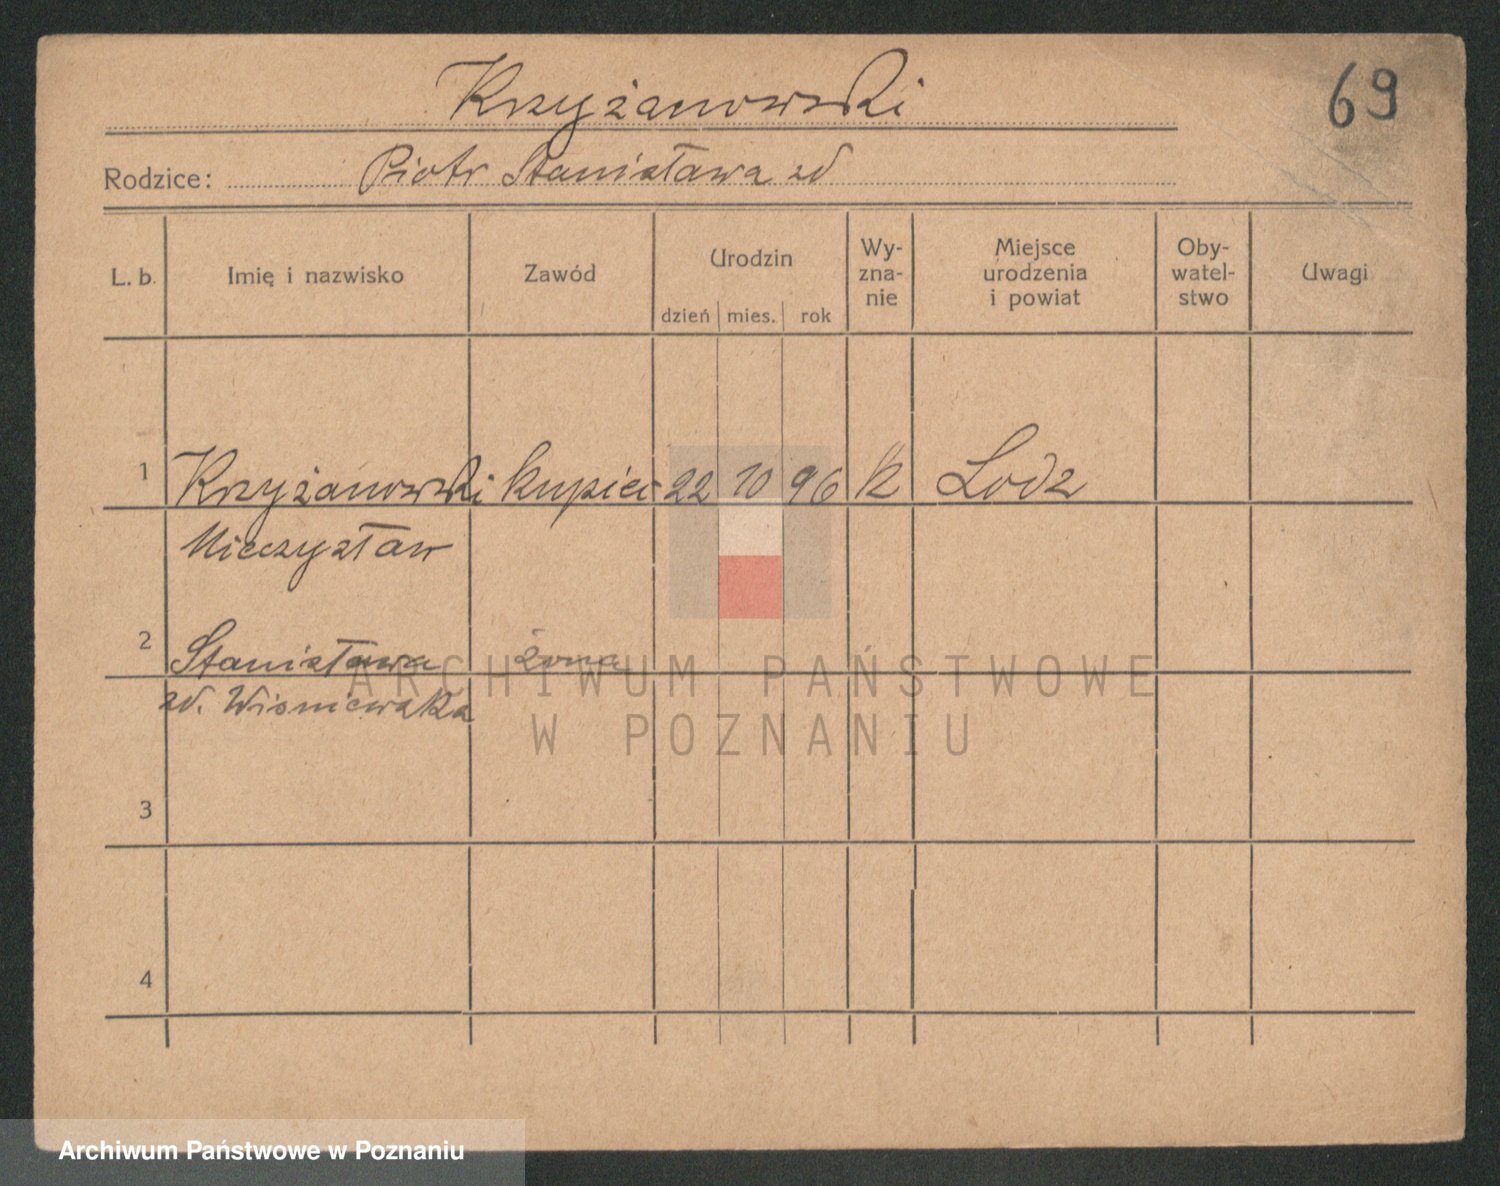 Krzyżanowski
69
Rodzice: Piotr Stanisława zd
L. b. Imię i nazwisko Zawód Urodzin dzień mies. rok Wy-zna-nie Miejsce urodzenia i powiat Oby-watel-stwo Uwagi
1 Krzyżanowski kupiec 22 10 96 k Lodz
Mieczysław
2 Stanisława żona
zd. Wisniewska
ARCHIWUM PAŃSTWOWE
W POZNANIU
3
4
Archiwum Państwowe w Poznaniu